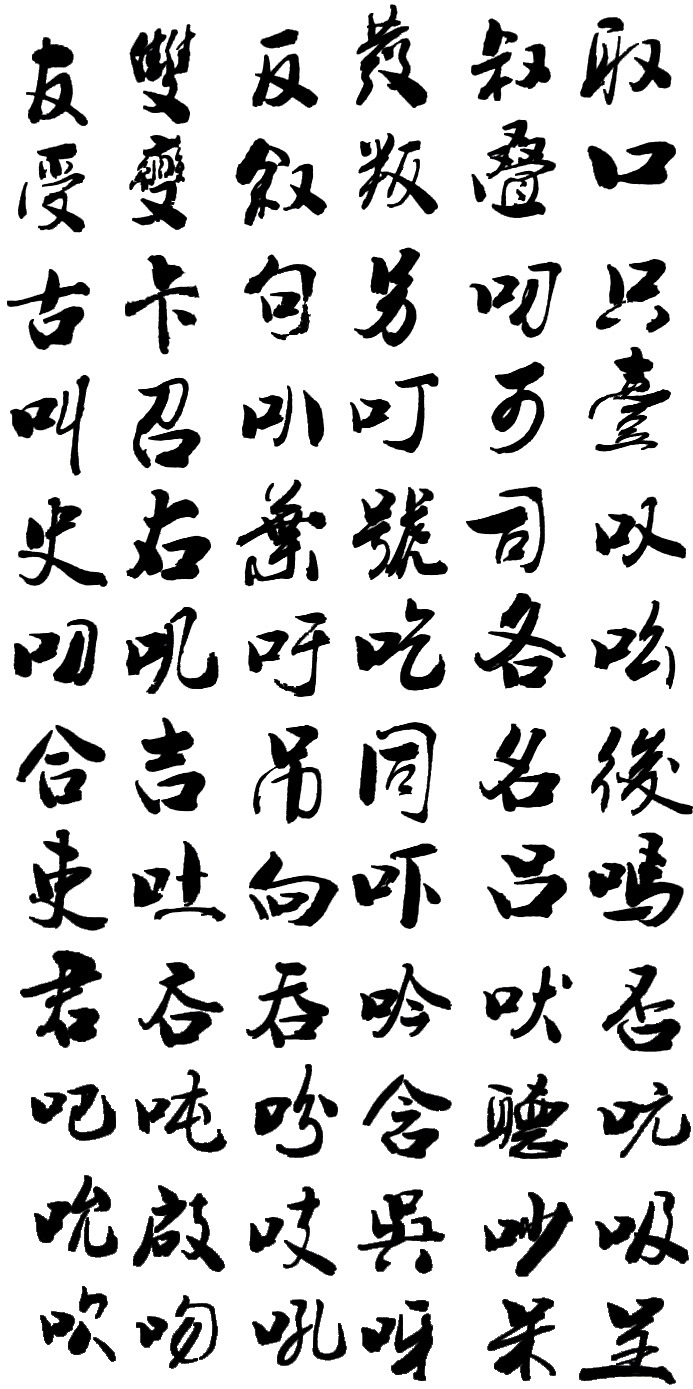 友雙反發叔取
受變叙叛叠口
古卡句另叨只
叫召叭叮可臺
史右葉號司叹
叼叽吁吃各吆
合吉吊同名後
吏吐向吓吕嗎
君吝吞吟吠否
吧吨吩含聽吭
吮啟吱吳吵吸
吹吻吼呀呆呈